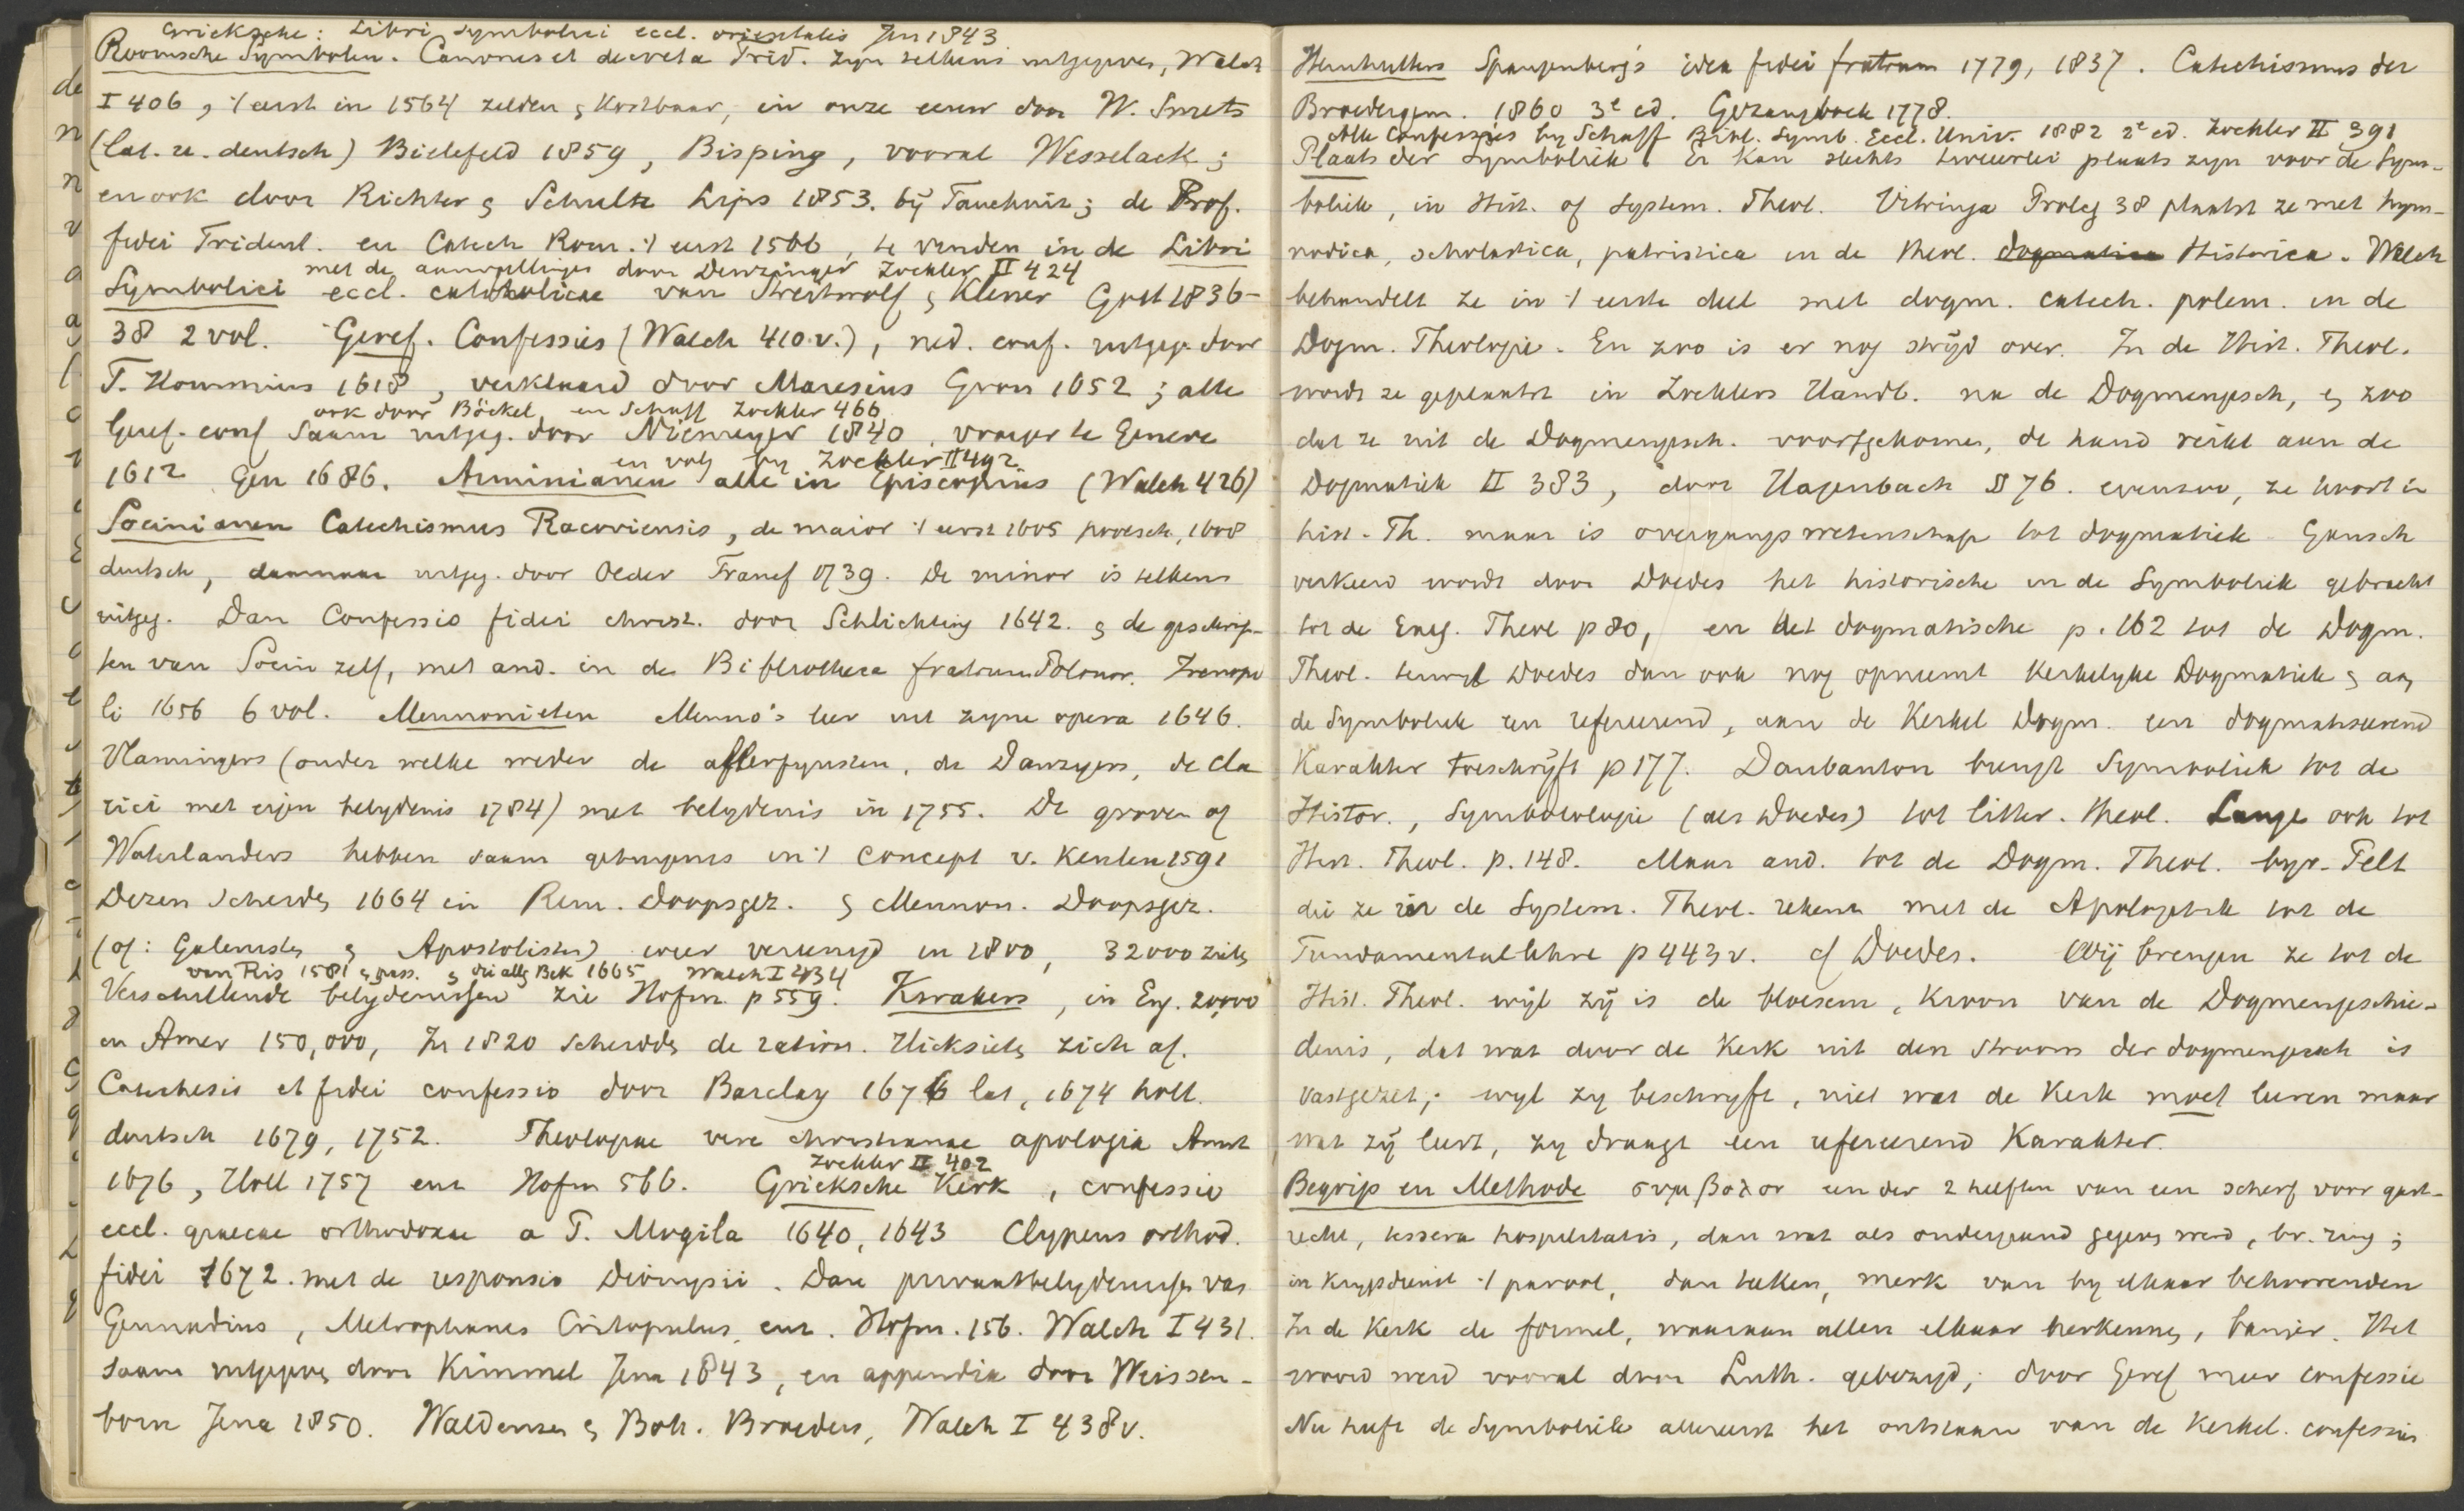 Grieksche: Libri symbolici eccl. orientalis Jen 1843
Roomsche Symbolen. Canones et decreta Trid. zyn telkens uitgegeven, Walch
I 406, 't eerst in 1564 zelden & kostbaar, in onze eeuw door W. Smets
(lat. u. deutsch) Bielefeld 1859, Bisping, vooral Wesselack;
en ook door Richter & Schulte Lips 1853. bij Tauchnitz; de Prof.
fidei Trident. en Catech Rom. 't eerst 1566, te vinden in de Libri
met de aanvullingen door Denzinger Zockler II 424
Symbolici eccl. catholicae van Streitwolf & Klener Gott 1836-
38 2 vol. Geref. Confessies (Walch 410 v.), ned. conf. uitgeg. door
F. Hommius 1618, verklaard door Maresius Gron 1652; alle
ook door Böckel en Schaff Zockler 466
Geref. conf saam uitgeg. door Niemeyer 1840, vroeger te Geneve
en volg by Zockler II 492
1612 Gen 1686. Arminianen alle in Episcopius (Walch 426)
Socinianen Catechismus Racoviensis, de maior 't eerst 1605 poolsch, 1608
deutsch, daarnaar uitgeg. door Oeder Francf 1739. De minor is telkens
uitgeg. Dan Confessio fidei christ. door Schlichting 1642. & de geschrif-
ten van Socin zelf, met and. in de Bibliotheca fratrum Polonor. Irenopo
li 1656 6 vol. Mennonieten Menno's leer uit zyne opera 1646.
Vlamingers (onder welke weder de allerfynsten, de Danzigers, de Cla
rici met eigen belydenis 1784) met belydenis in 1755. De groven of
Waterlanders hebben saam getuigenis in 't concept v. Keulen 1591
Dezen scheidde 1664 in Rem. Doopsgez. & Mennon. Doopsgez.
(of: Galenisten & Apostolisten) weer vereenigd in 1800, 32000 zielen
van Ris 1581 & pass. & die alg Bek 1665 Walch I 434
Verschillende belydenissen zie Hofm p 559. Kwakers, in Eng. 20,000
en Amer 150,000, In 1820 scheidde de ration. Hicksiets zich af.
Catechesis et fidei confessio door Barclay 1676 lat, 1674 holl.
deutsch 1679, 1752. Theologiae vere christianae apologia Amst
Zockler II 402
1676, Holl 1757 enz Hofm 566. Grieksche Kerk, confessio
eccl. graecae orthodoxae a P. Mogila 1640, 1643 Clypeus orthod.
fidei 1672. met de responsio Dionysii. Dan privaatbelydenissen van
Gennadius, Metrophanes Critopulus, enz. Hofm. 156. Walch I 431.
saam uitgegeven door Kimmel Jena 1843, en appendix door Weissen-
born Jena 1850. Waldenzen & Boh. Broeders, Walch I 438 v.
Hernhutters Spangenberg's idea fidei fratrum 1779, 1837. Catechismus der
Broedergem. 1860 3e ed. Gezangboek 1778.
Alle Confessies by Schaff Bibl. Symb. Eccl. Univ. 1882 2e ed. Zockler II 391
Plaats der Symboliek. Er kan slechts tweeerlei plaats zyn voor de Sym-
boliek, in Hist. of System. Theol. Vitringa Proleg 38 plaatst ze met hym-
nodica, scholastica, patristica in de theol. dogmatica Historica. Walch
behandelt ze in 't eerste deel met dogm. catech. polem. in de
Dogm. Theologie. En zoo is er nog strijd over. In de Hist. Theol.
wordt ze geplaatst in Zocklers Handb. na de Dogmengesch, & zoo
dat ze uit de Dogmengesch. voortgekomen, de hand reikt aan de
Dogmatiek II 383, door Hagenbach § 76. evenzoo, ze hoort in
hist. Th. maar is overgangswetenschap tot dogmatiek. Gansch
verkeerd wordt door Doedes het historische in de Symboliek gebracht
tot de Eneg. Theol p 80, en het dogmatische p. 162 tot de Dogm.
Theol. terwyl Doedes dan ook nog opneemt Kerkelyke Dogmatiek & aan
de Symboliek een refereerend, aan de Kerkel Dogm. een dogmatiseerend
Karakter toeschrijft p 177. Daubanton brengt Symboliek tot de
Histor., Symbolologie (als Doedes) tot litter. theol. Lange ook tot
Hist. Theol. p. 148. Maar and. tot de Dogm. Theol. byv. Pelt
die ze in de System. Theol. rekent met de Apologetik tot de
Fundamentallehre p 443 v. cf Doedes. Wij brengen ze tot de
Hist. Theol. wijl zij is de bloesem, kroon van de Dogmengeschie-
denis, dat wat door de Kerk uit den stroom der dogmengesch is
vastgezet; wyl zy beschryft, niet wat de Kerk moet leeren maar
wat zij leert, zy draagt een refereerend Karakter.
Begrip en Methode συμβολον een der 2 helften van een scherf voor gast-
recht, tessera hospitalitatis, dan wat als onderpand gegeven werd, bv. ring;
in krygsdienst 't parool, dan teeken, merk van by elkaar behoorenden
In de Kerk de formel, waaraan allen elkaar herkennen, banier. Het
woord werd vooral door Luth. gebezigd, door Geref meer confessie
Nu heeft de Symboliek allereerst het ontstaan van de Kerkel. confessies